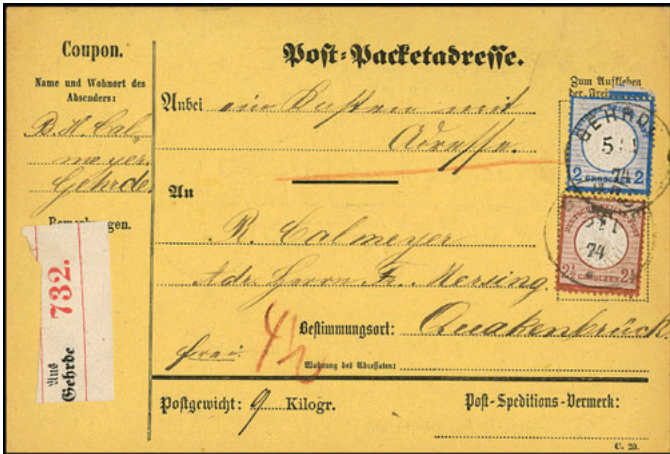 Coupon.
Name und Wohnort des
Absenders:
B. H. Cal-
meyer
Gehrde
Bemerkungen.
Aus
Gehrde
732.
Post-Packetadresse.
Zum Aufkleben
der
Anbei ein Kasten mit
Adresse.
An
B. Calmeyer
Adr. Herrn Fr. Mersing
Bestimmungsort: Quakenbrück.
frei
4½
Wohnung des Adressaten:
Postgewicht: 9 Kilogr.
Post-Speditions-Vermerk:
C. 20.
GEHRDE
5/1
74
2 GROSCHEN 2
5/1
74
2½ GROSCHEN 2½